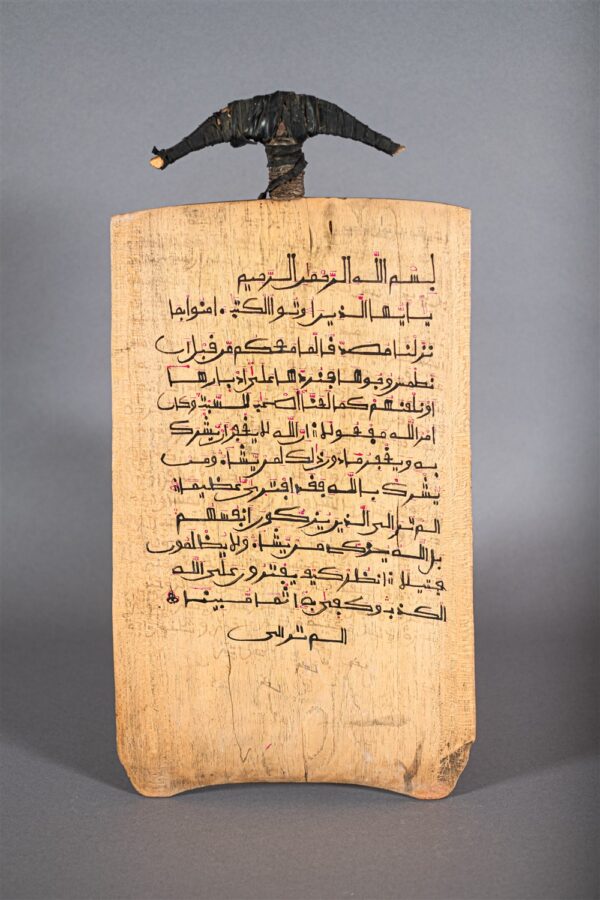 بسم الله الرحمن الرحيم
يأيها الذين اوتوا الكتب امنوا بما
نزلنا مصدقا لما معكم من قبل ان
نطمس وجوها فنردها على ادبارها
او نلعنهم كما لعنا اصحب السبت وكان
امر الله مفعولا ان الله لا يغفر ان يشرك
به ويغفر ما دون ذلك لمن يشاء ومن
يشرك بالله فقد افترى عظيما
الم تر الى الذين يزكون انفسهم
بل الله يزكى من يشاء ولا يظلمون
فتيلا انظر كيف يفترون على الله
الكذب وكفى به اثما مبينا
الم تر الى